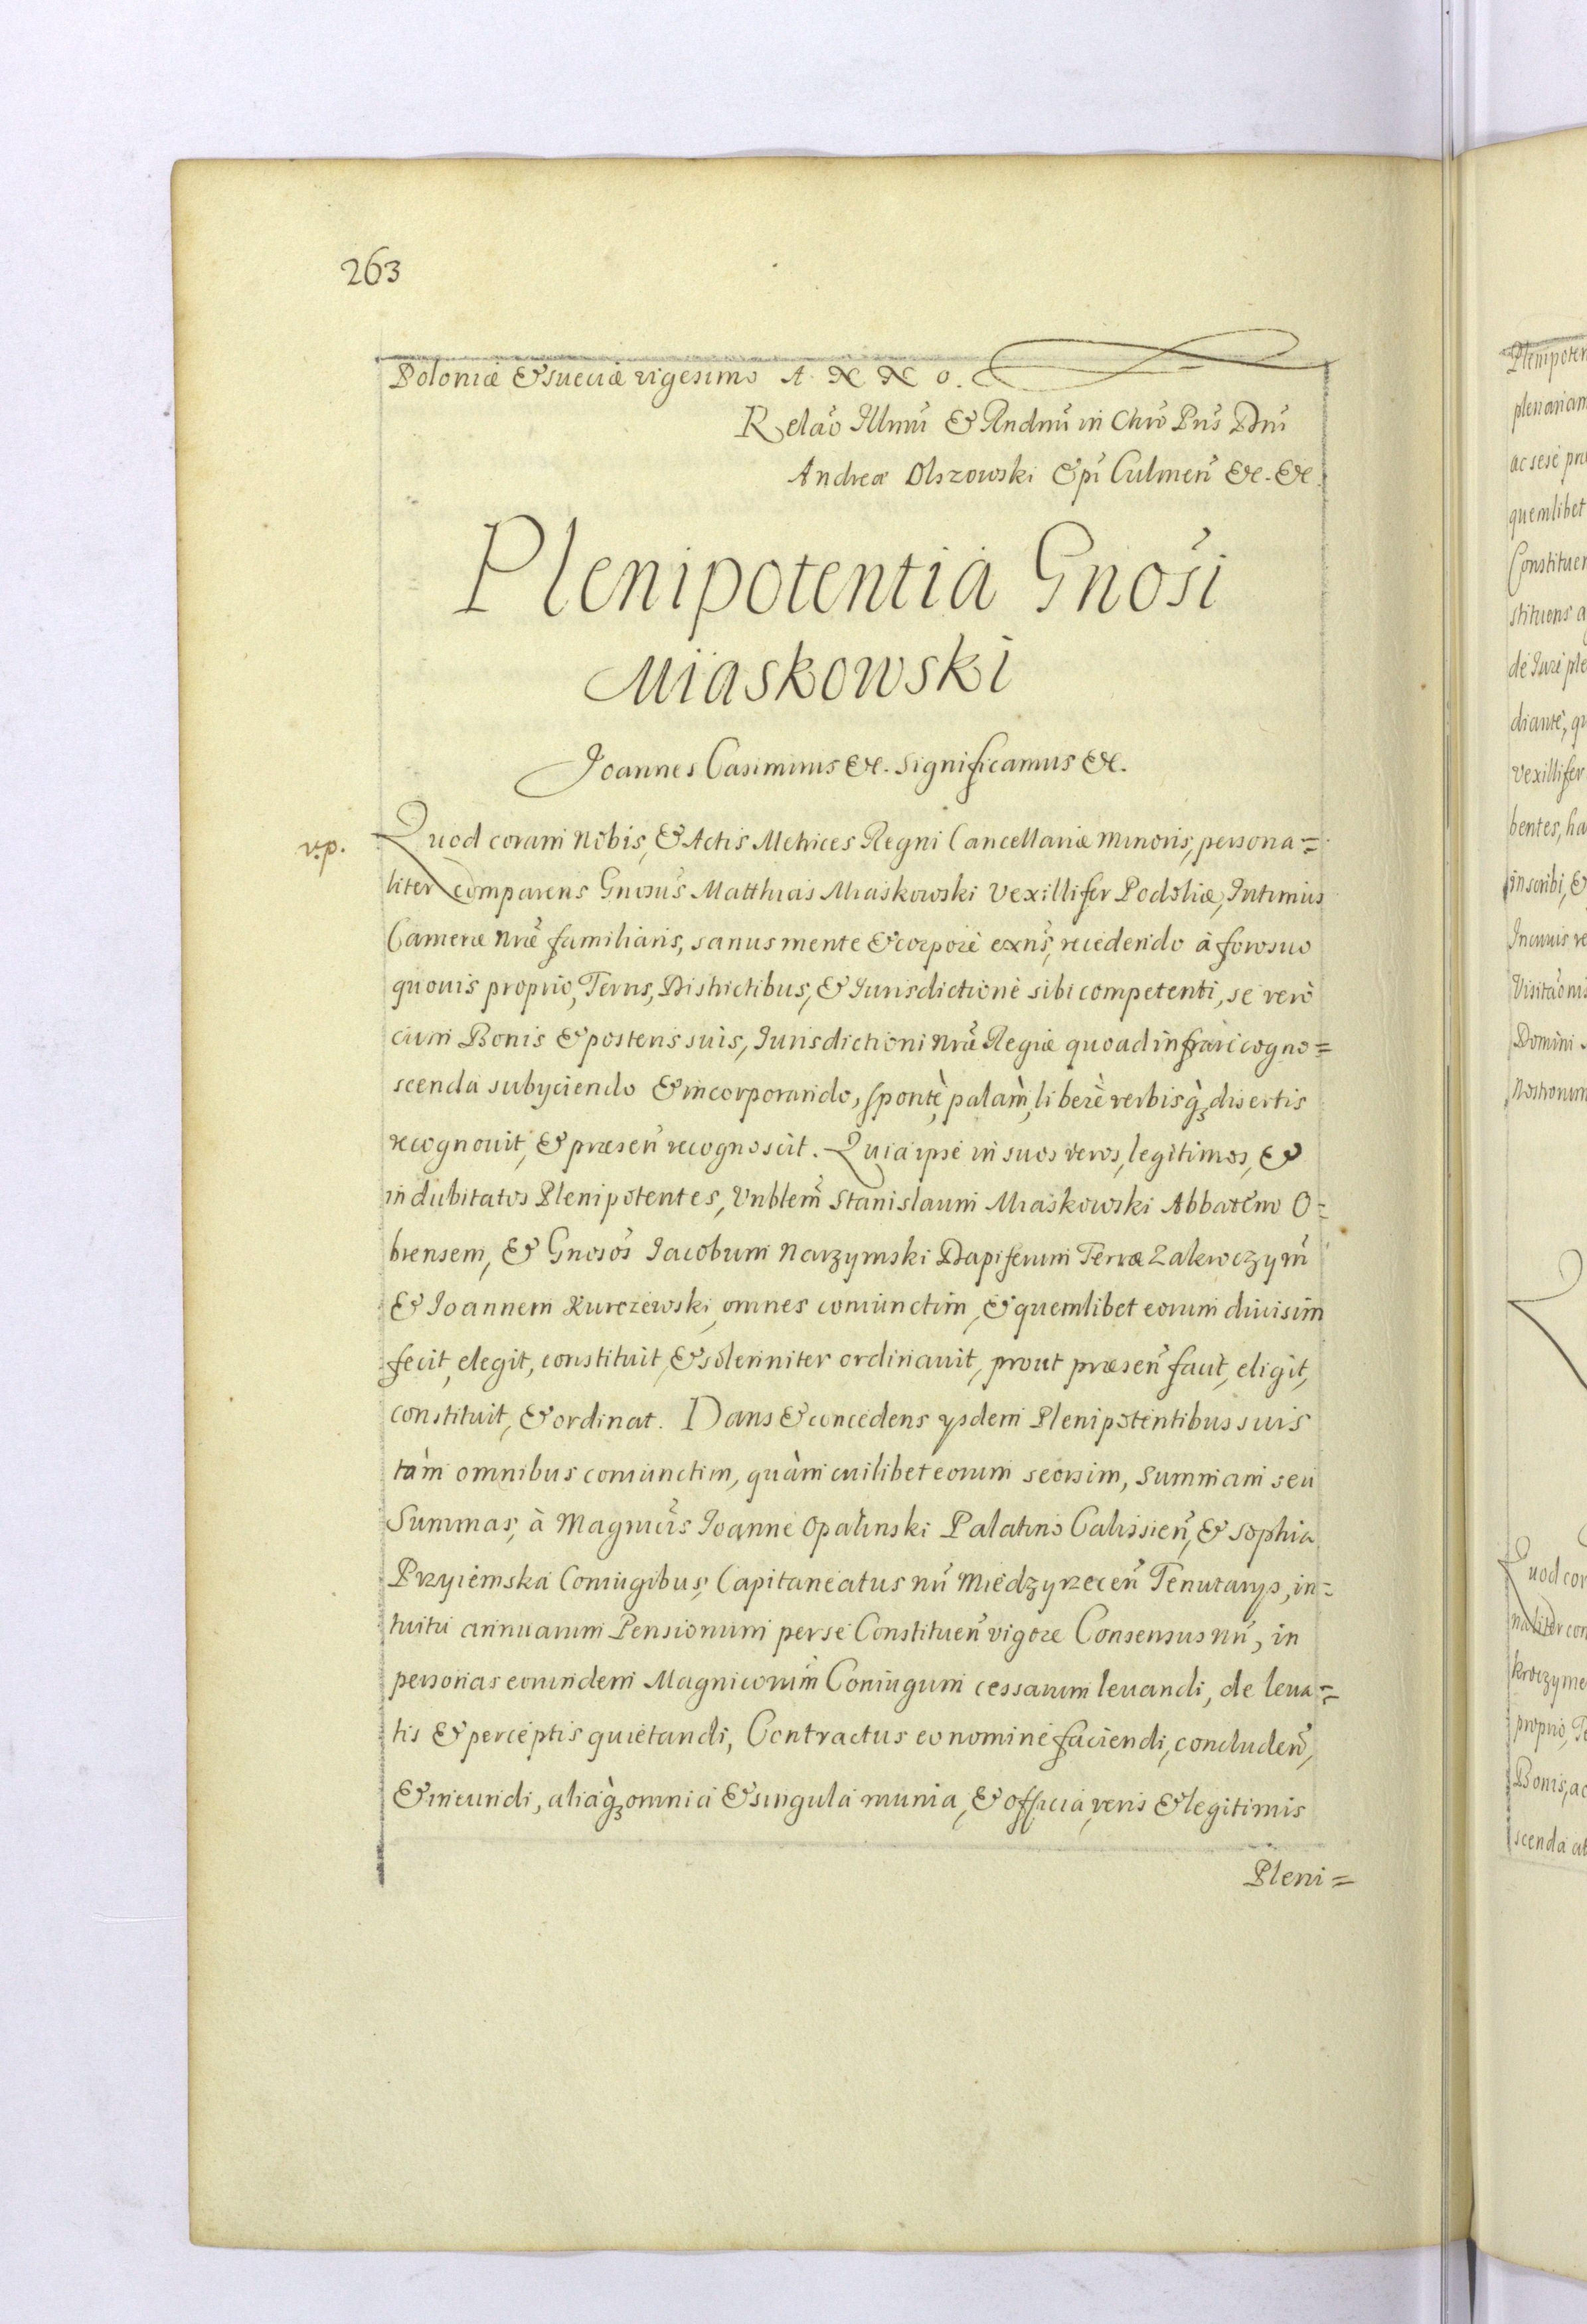 263
Poloniæ & Sueciæ vigesimo A N N O.
Relaõ Illmi & Rndmi in Chro Pris Dni
Andreæ Olszowski Epi Culmen̄ &c. &c.
Plenipotentia Gnosi
Miaskowski
Joannes Casimirus &c. Significamus &c.
v.p.
Quod coram Nobis, & Actis Metrices Regni Cancellariæ Minoris, persona=
liter Comparens Gnosus Matthias Miaskowski Vexillifer Podoliæ, Intimius
Cameræ Nræ familiaris, sanus mente & corpore exns, recedendo à foro suo
quouis proprio, Terris, Districtibus, & Jurisdictione sibi competenti, se verò
cum Bonis & posteris suis, Jurisdictioni Nræ Regiæ quoad infrarecogno=
scenda subyciendo & incorporando, spontè, palàm, liberè verbisq̀ȝ disertis
recognouit, & præsen̄ recognoscit. Quia ipse in suos veros, legitimos, &
indubitatos Plenipotentes, Vnblem̄ Stanislaum Miaskowski Abbatem O=
brensem, & Gnosos Jacobum Narzymski Dapiferum Terræ Zakroczym̄
& Joannem Kurczewski, omnes coniunctim, & quemlibet eorum diuisim
fecit, elegit, constituit, & solenniter ordinauit, prout præsen̄ facit, eligit,
constituit, & ordinat. Dans & concedens ysdem Plenipotentibus suis
tàm omnibus coniunctim, quàm cuilibet eorum seorsim, Summam seu
Summas, à Magnicis Joanne Opalinski Palatino Calissien̄, & Sophia
Przyiemska Coniugibus, Capitaneatus nri Miedzyrzecen̄ Tenutarys, in=
tuitu annuarum Pensionum per se Constituen̄ vigore Consensus nri, in
personas eorundem Magnicorum Coniugum cessarum leuandi, de leua=
tis & perceptis quietandi, Contractus eo nomine faciendi, concluden̄,
& ineundi, aliaq̀ȝ omnia & singula munia, & officia, veris & legitimis
Pleni=